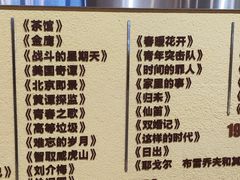 《茶馆》
《金鹰》
《战斗的星期天》
《美国奇谭》
《北京即景》
《黄谭探监》
《青春之歌》
《高等垃圾》
《难忘的岁月》
《智取威虎山》
《刘介梅》
《春暖花开》
《青年突击队》
《时间的罪人》
《家里的事》
《归来》
《仙笛》
《双婚记》
《这样的时代》
《日出》
《耶戈尔 布雷乔夫和其
19